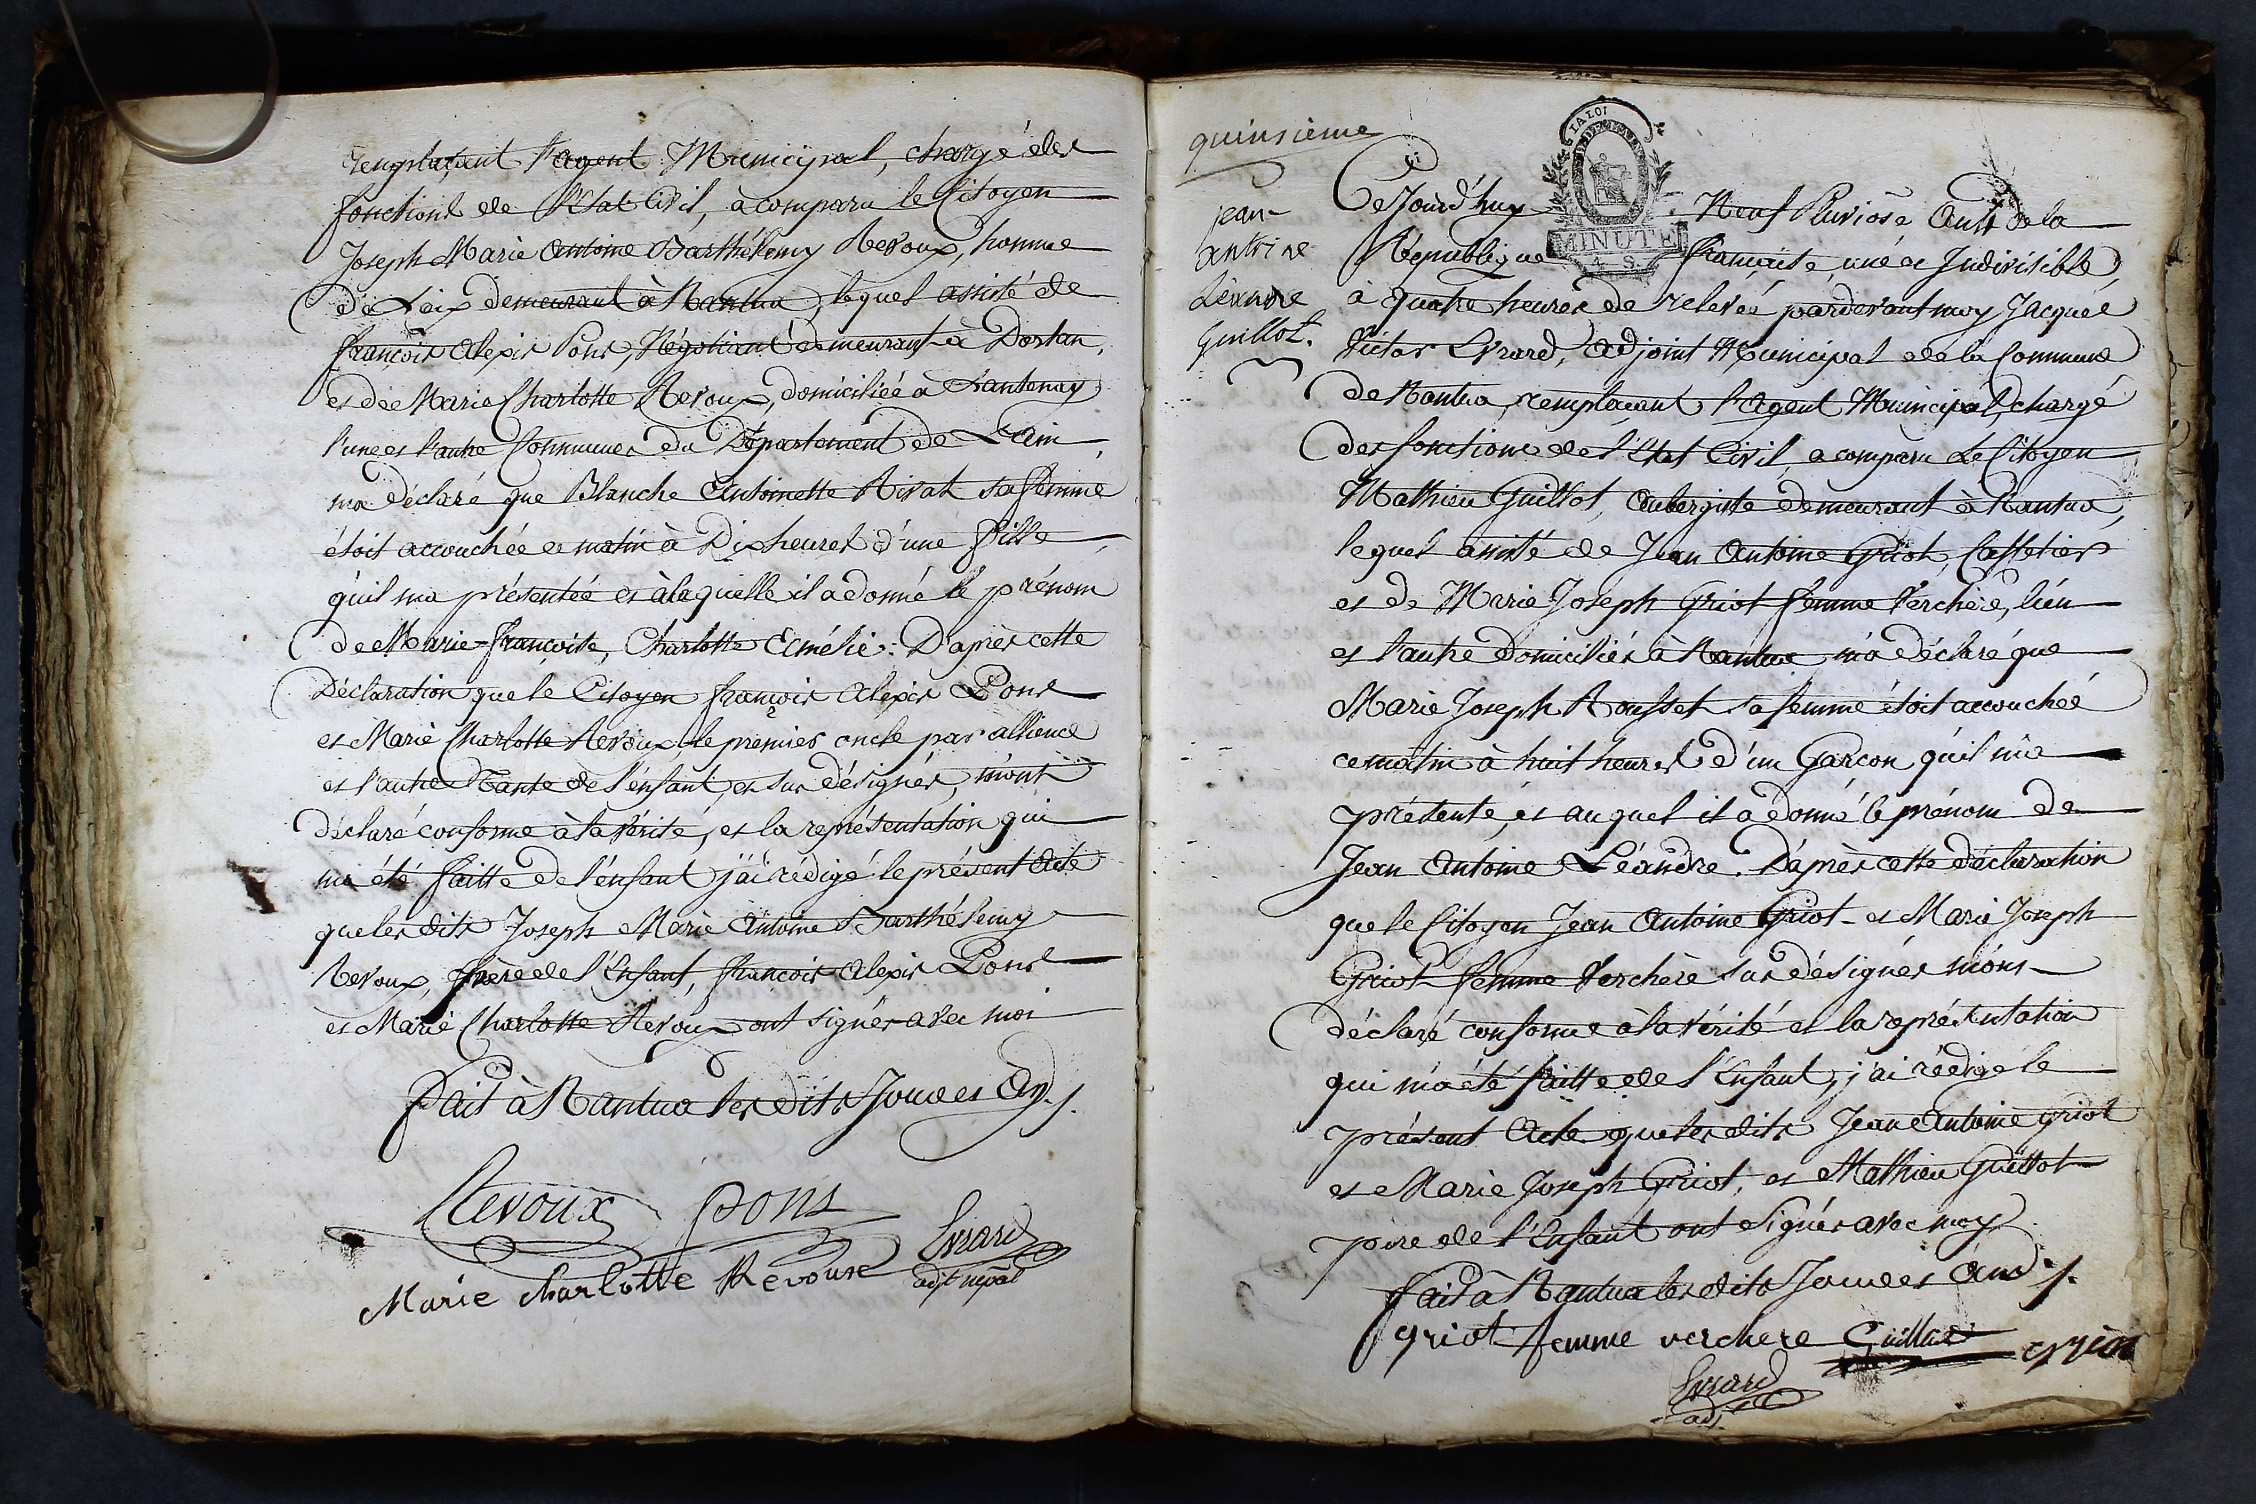 remplaçant l'agent Municipal, chargé des
fonctions de l'Etat Civil, à comparu le Citoyen
Joseph Marie Antoine Barthélemy Revoux, homme
de Loix demeurant à Nantua, lequel assisté de
françois Alexis Pons, Négotiant demeurant à Dortan,
et de Marie Charlotte Revoux, domiciliée à Lantenay
l'une et l'autre Communes du Département de L'ain,
ma déclaré que Blanche Antoinette Rivat sa femme
étoit accouchée ce matin à Dix heures d'une fille
qu'il ma présentée et à laquelle il a donné le prénom
de Marie-françoise, Charlotte Esmélie: D'après cette
Déclaration que le Citoyen françois Alexis Pons
et Marie Charlotte Revoux, le premier oncle par allience
et l'autre Tante de l'énfant, et sus désignés, m'ont
déclaré conforme à la vérité, et la représentation qui
ma été faitte de l'énfant j'ai rédigé le présent acte
que les dits Joseph Marie Antoine Barthélemy
Revoux, père de l'Enfant, françois Alexis Pons
et Marie Charlotte Revoux ont signés avec moi
fait à Nantua les dits Jour et An ./.
Revoux pons
Evrard
Marie charlotte Revoux adjt mpal
quinsième
jean
antoine
Léandre
Guillot.
LA LOI
MINUTE
4. S.
Cejourd'huy Neuf Pluviôse An de la
République française, une et Indivisible,
à quatre heures de relevée pardevant moy Jacques
Victor Evrard, Adjoint Municipal de la Commune
de Nantua, remplacant l'Agent Municipal, chargé
des fonctions de l'Etat Civil, a comparu Le Citoyen
Mathieu Guillot, Aubergiste demeurant à Nantua,
lequel assisté de Jean Antoine Griot, Caffetier
et de Marie Joseph Griot femme Verchère, l'un
et l'autre Domiciliés à Nantua m'a déclaré que
Marie Joseph Rousset sa femme étoit accouchée
ce matin à huit heures d'un Garçon qu'il m'a
présenté, et auquel il a donné le prénom de
Jean Antoine Léandre. D'après cette déclaration
que le Citoyen Jean Antoine Griot et Marie Joseph
Griot femme Verchère sus désignés m'ont
déclaré conforme à la vérité et la représentation
qui m'a été faitte de l'Enfant, j'ai rédigé le
présent Acte que les dits Jean Antoine griot
et Marie Joseph Griot, et Mathieu Guillot
père de l'Enfant ont signés avec moy
fait à Nantua les dits Jour et An ./.
griot femme verchere Guillot griot
Evrard
adjt